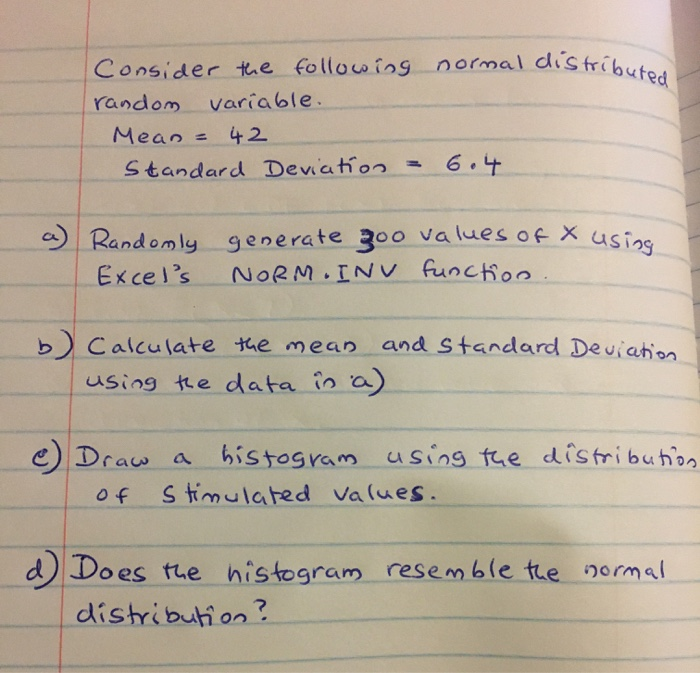 Consider the following normal distributed
random variable.
Mean = 42
Standard Deviation = 6.4
a) Randomly generate 300 values of X using
Excel's NORM.INV function.
b) Calculate the mean and Standard Deviation
using the data in a)
c) Draw a histogram using the distribution
of Stimulated values.
d) Does the histogram resemble the normal
distribution?